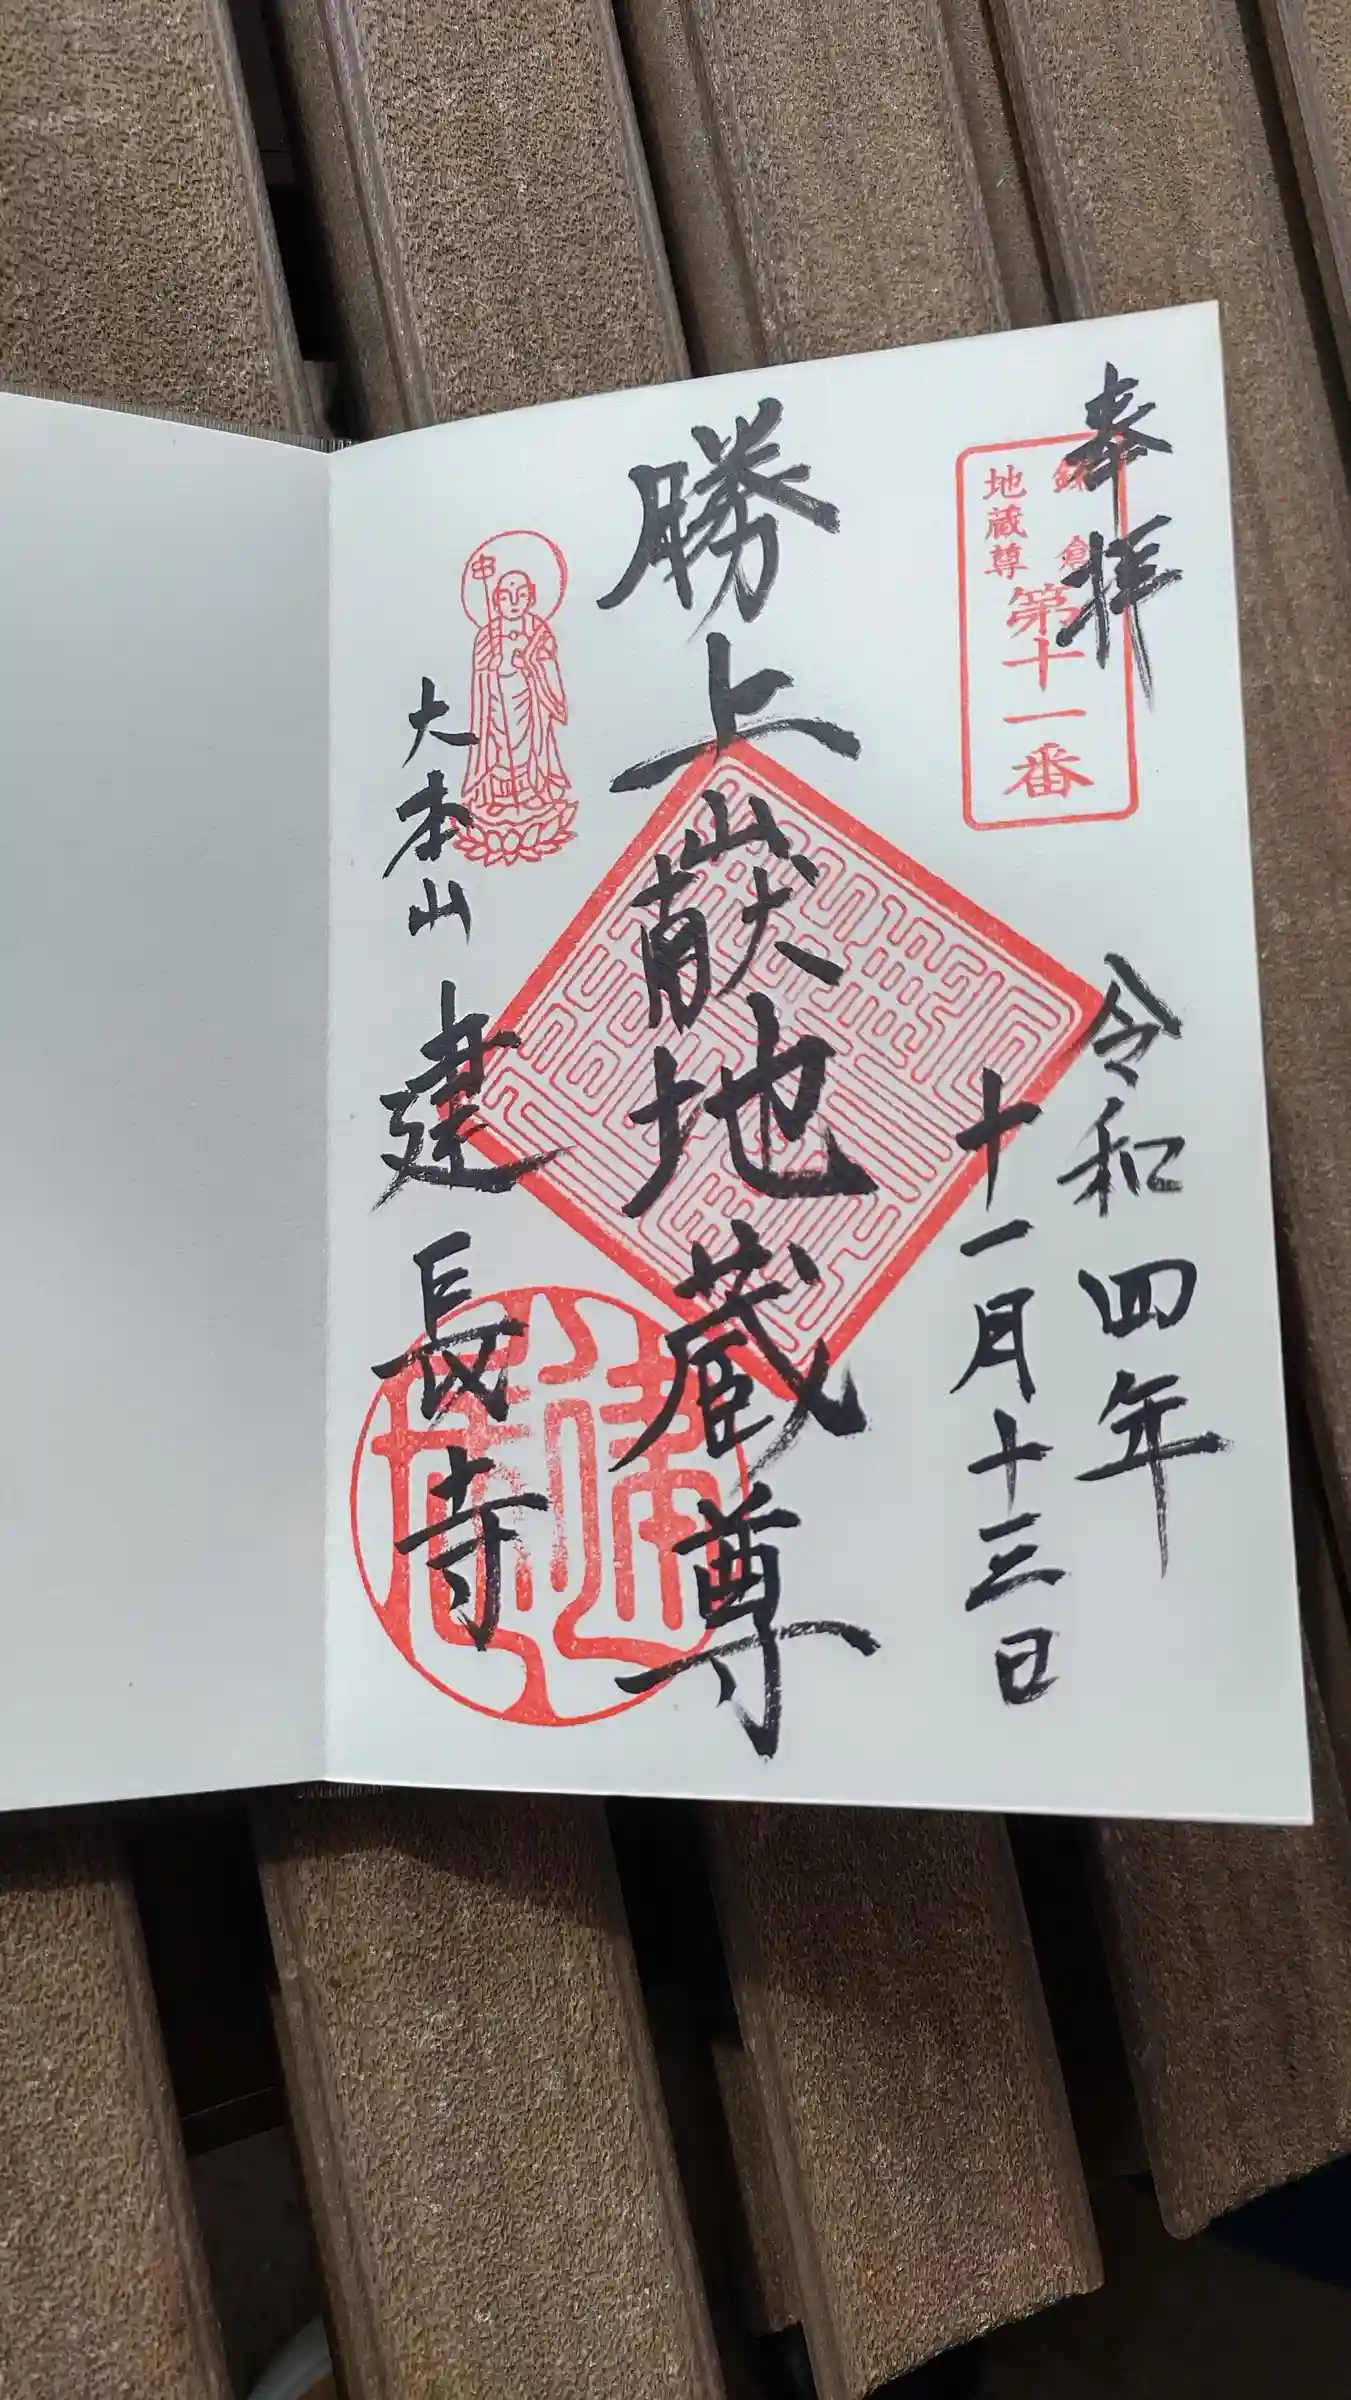 奉拝
鎌倉
地蔵尊
第十一番
令和四年
十一月十三日
勝上嶽地蔵尊
大本山 建長寺